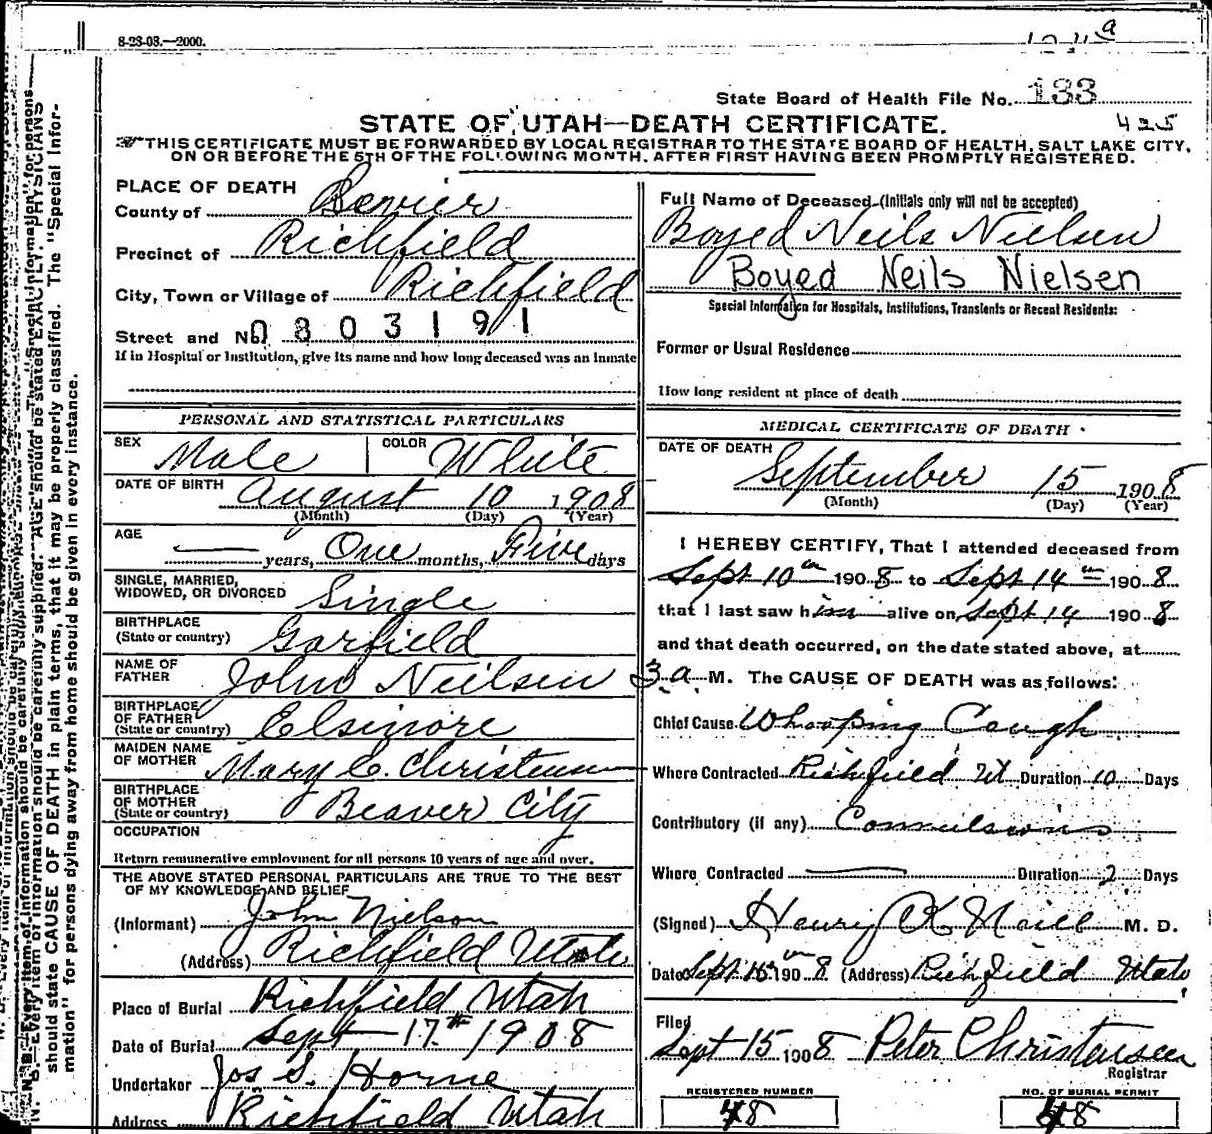 8-23-03.—2000.
State Board of Health File No. 133
425
STATE OF UTAH—DEATH CERTIFICATE.
THIS CERTIFICATE MUST BE FORWARDED BY LOCAL REGISTRAR TO THE STATE BOARD OF HEALTH, SALT LAKE CITY,
ON OR BEFORE THE 5TH OF THE FOLLOWING MONTH, AFTER FIRST HAVING BEEN PROMPTLY REGISTERED.
PLACE OF DEATH
County of Sevier
Precinct of Richfield
City, Town or Village of Richfield
Street and No. 0803191
If in Hospital or Institution, give its name and how long deceased was an inmate
PERSONAL AND STATISTICAL PARTICULARS
SEX Male COLOR White
DATE OF BIRTH August 10 1908
(Month) (Day) (Year)
AGE — years, One months, Five days
SINGLE, MARRIED,
WIDOWED, OR DIVORCED Single
BIRTHPLACE
(State or country) Garfield
NAME OF
FATHER John Neilsen
BIRTHPLACE
OF FATHER
(State or country) Elsinore
MAIDEN NAME
OF MOTHER Mary C. Christensen
BIRTHPLACE
OF MOTHER
(State or country) Beaver City
OCCUPATION
Return remunerative employment for all persons 10 years of age and over.
THE ABOVE STATED PERSONAL PARTICULARS ARE TRUE TO THE BEST
OF MY KNOWLEDGE AND BELIEF
(Informant) John Nielson
(Address) Richfield Utah
Place of Burial Richfield Utah
Date of Burial Sept 17th 1908
Undertaker Jos S. Horne
Address Richfield Utah
Full Name of Deceased (Initials only will not be accepted)
Boyed Neils Nielsen
Boyed Neils Nielsen
Special Information for Hospitals, Institutions, Transients or Recent Residents:
Former or Usual Residence
How long resident at place of death
MEDICAL CERTIFICATE OF DEATH
DATE OF DEATH
September 15 1908
(Month) (Day) (Year)
I HEREBY CERTIFY, That I attended deceased from
Sept 10th 1908 to Sept 14th 1908
that I last saw him alive on Sept 14 1908
and that death occurred, on the date stated above, at
3 a M. The CAUSE OF DEATH was as follows:
Chief Cause Whooping Cough
Where Contracted Richfield Ut Duration 10 Days
Contributory (if any) Convulsions
Where Contracted — Duration 2 Days
(Signed) Henry K Neill M. D.
Date Sept 15th 1908 (Address) Richfield Utah
Filed
Sept 15 1908 Peter Christensen
Registrar
REGISTERED NUMBER
48
NO. OF BURIAL PERMIT
48
should state CAUSE OF DEATH in plain terms, that it may be properly classified. The "Special Infor-
mation" for persons dying away from home should be given in every instance.